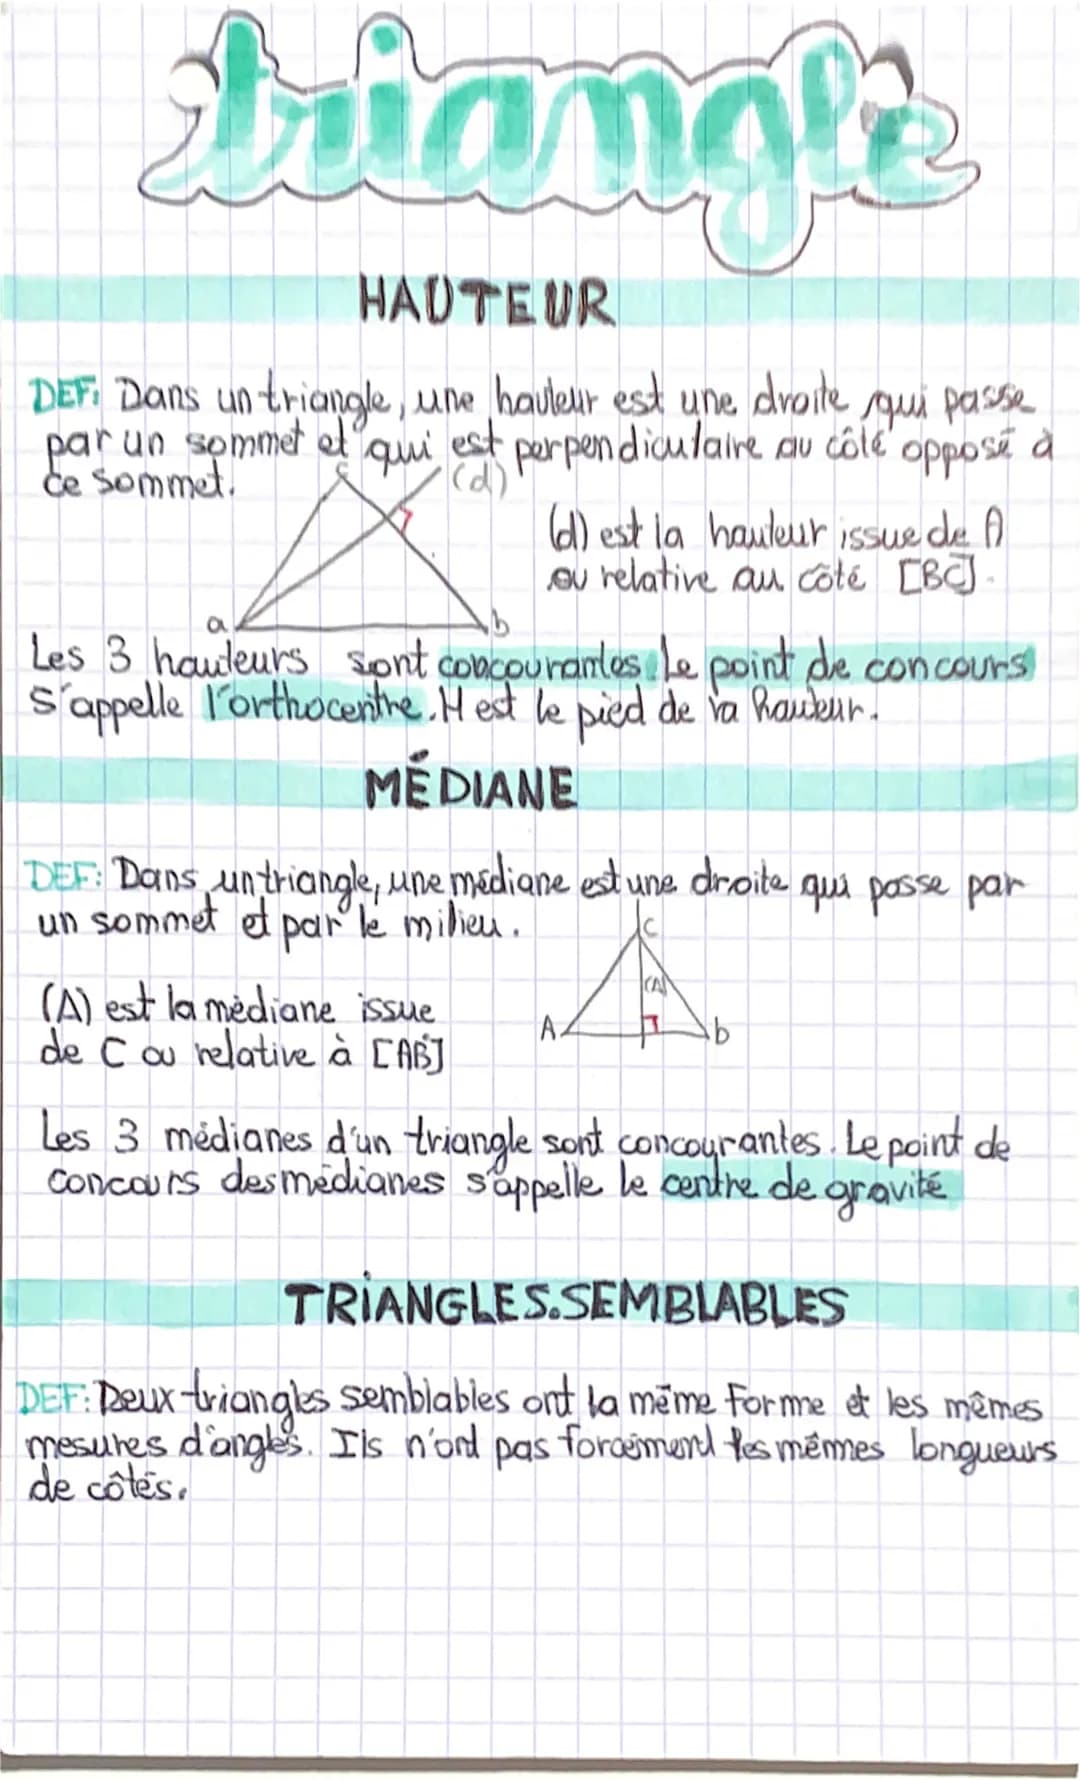 triangle
HAUTEUR
DEF: Dans un triangle, une hauteur est une droite qui passe
par un sommet et qui est perpendiculaire au côté opposé à
ce sommet.
c
(d)
(d) est la hauteur issue de A
ou relative au côté [BC].
a
b
Les 3 hauteurs sont concourantes. Le point de concours
s'appelle l'orthocentre. H est le pied de la hauteur.
MÉDIANE
DEF: Dans un triangle, une médiane est une droite qui passe par
un sommet et par le milieu.
C
(A)
(A) est la médiane issue
A
b
de C ou relative à [AB]
Les 3 médianes d'un triangle sont concourantes. Le point de
concours des médianes s'appelle le centre de gravité
TRIANGLES.SEMBLABLES
DEF: Deux triangles semblables ont la même forme et les mêmes
mesures d'angles. Ils n'ont pas forcément les mêmes longueurs
de côtés.